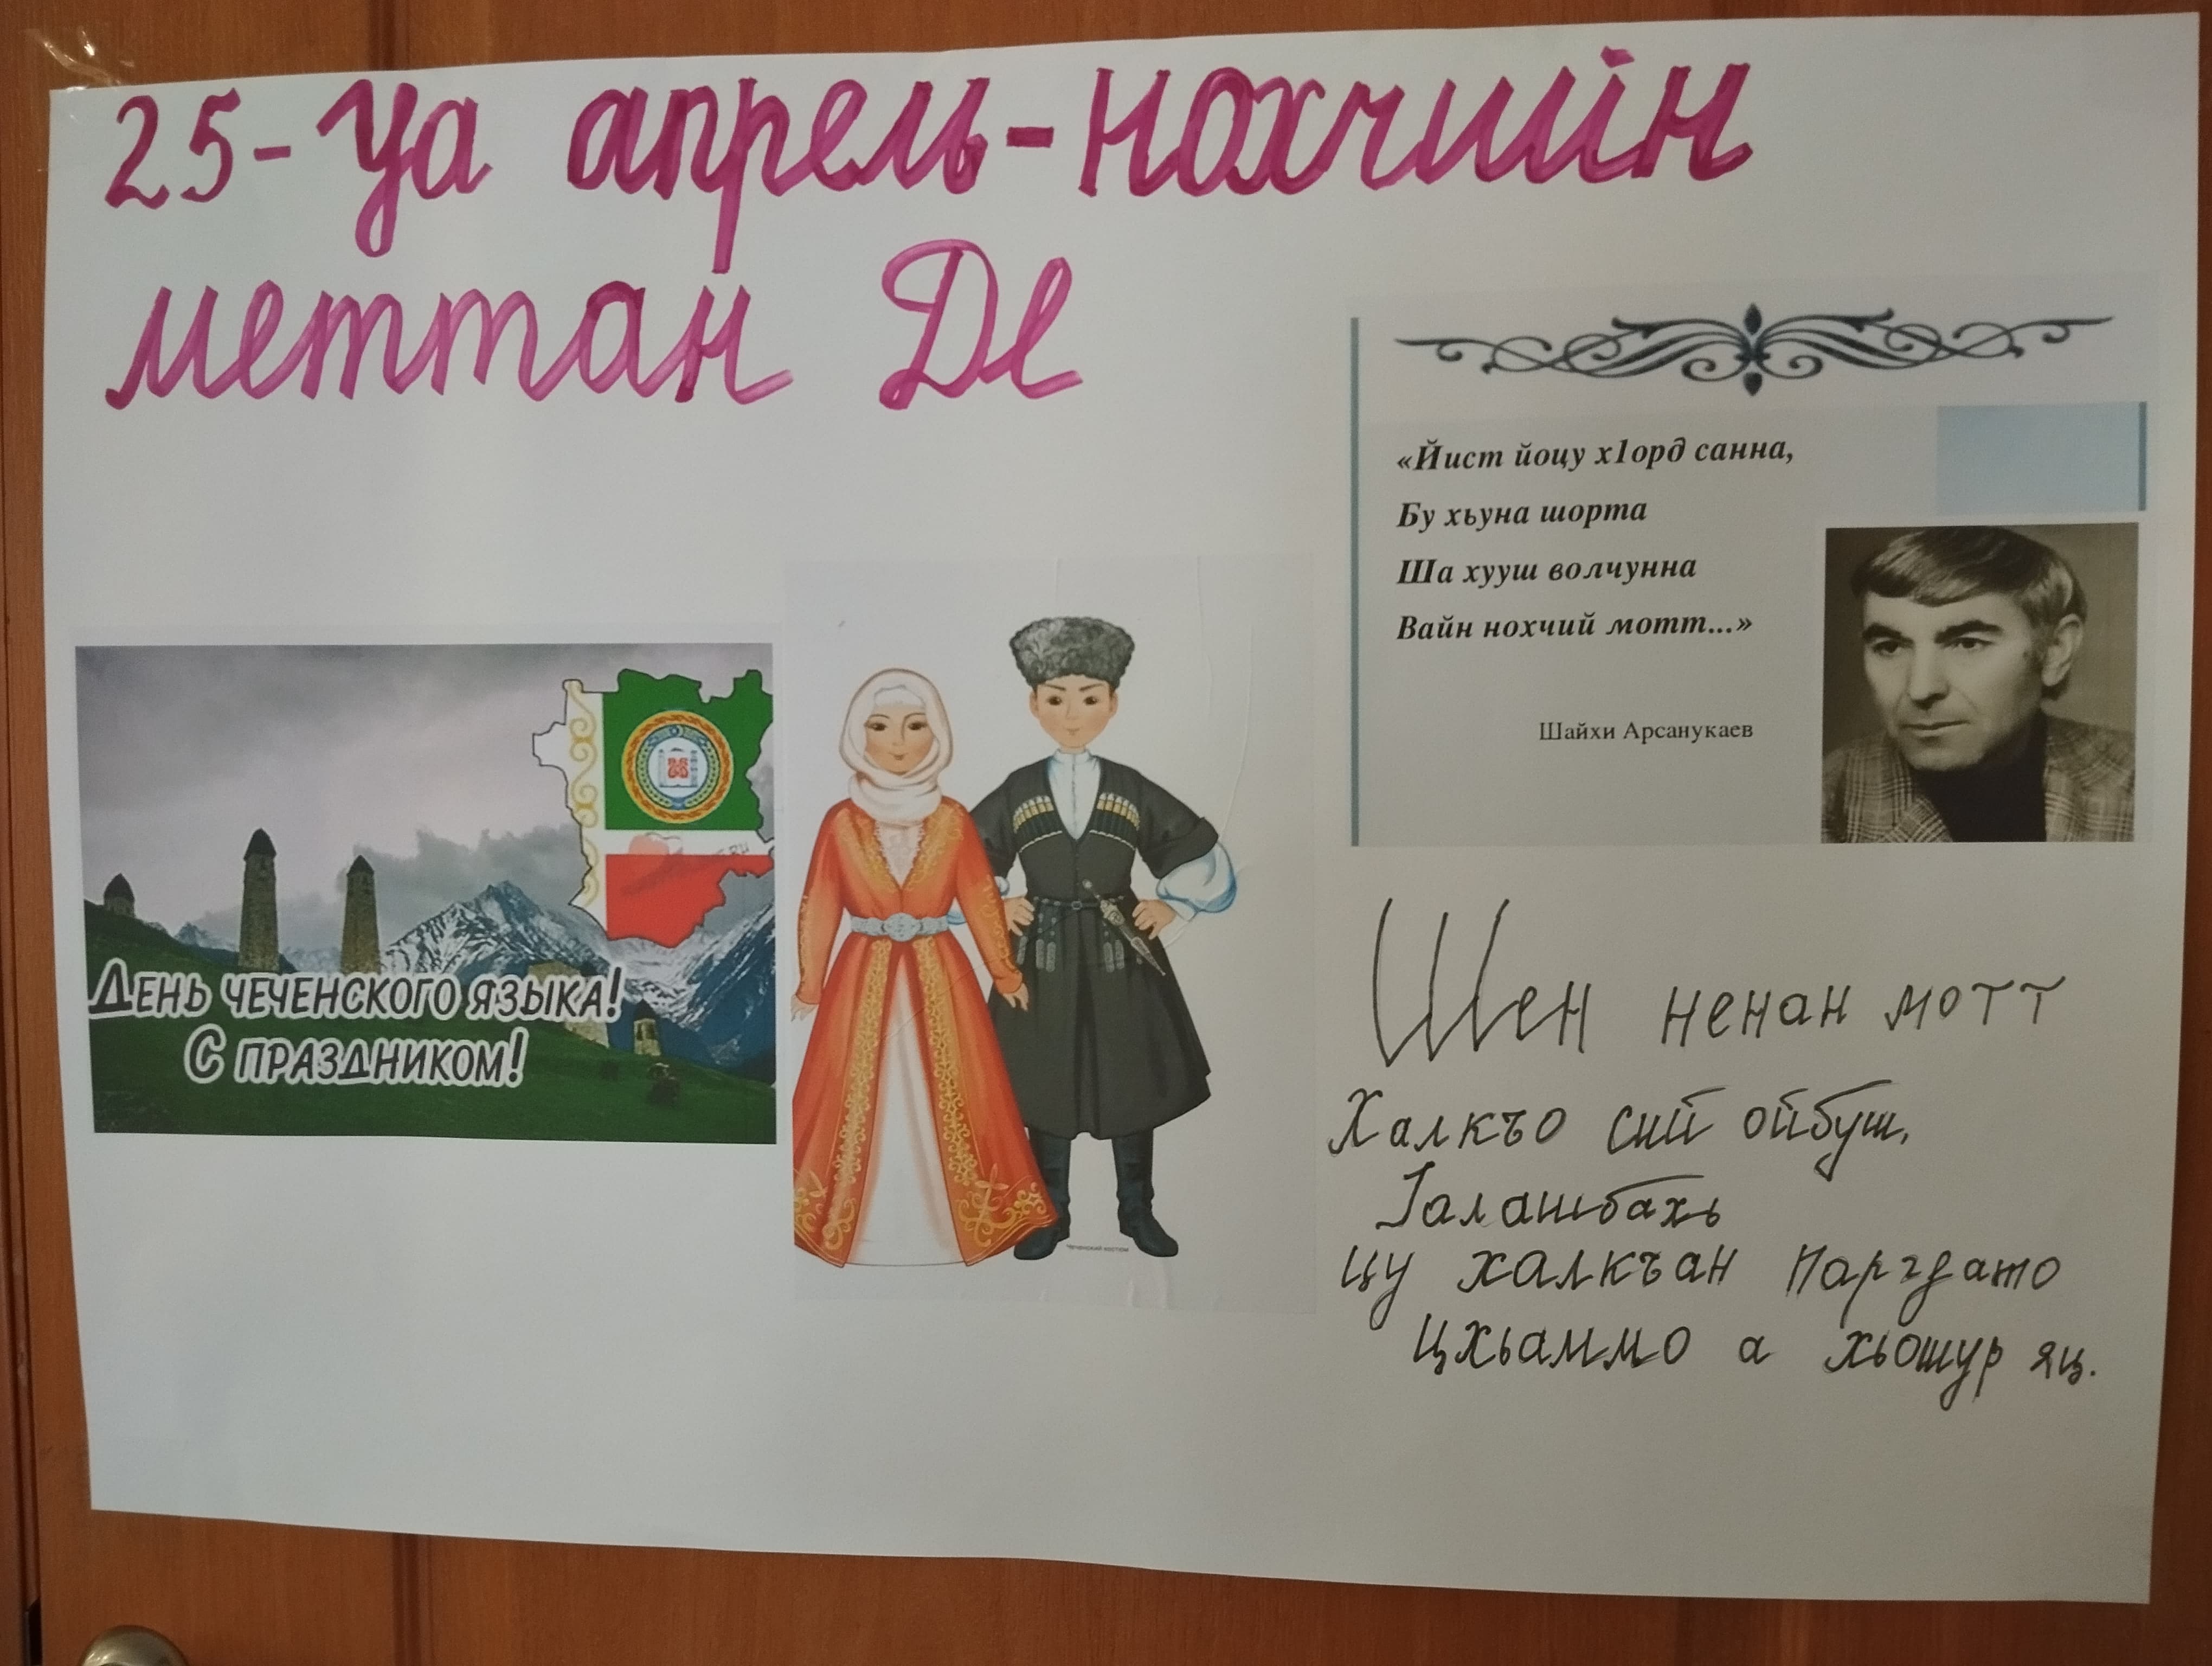 25-уа апрель-нохчийн
меттан Де
«Йист йоцу х1орд санна,
Бу хьуна шорта
Ша хууш волчунна
Вайн нохчий мотт...»
Шайхи Арсанукаев
День чеченского языка!
С праздником!
Чеченский костюм
Шен ненан мотт
Халкъо сий ойбуш,
Iалашбахь
цу халкъан паргдато
Цхьаммо а хьошур яц.